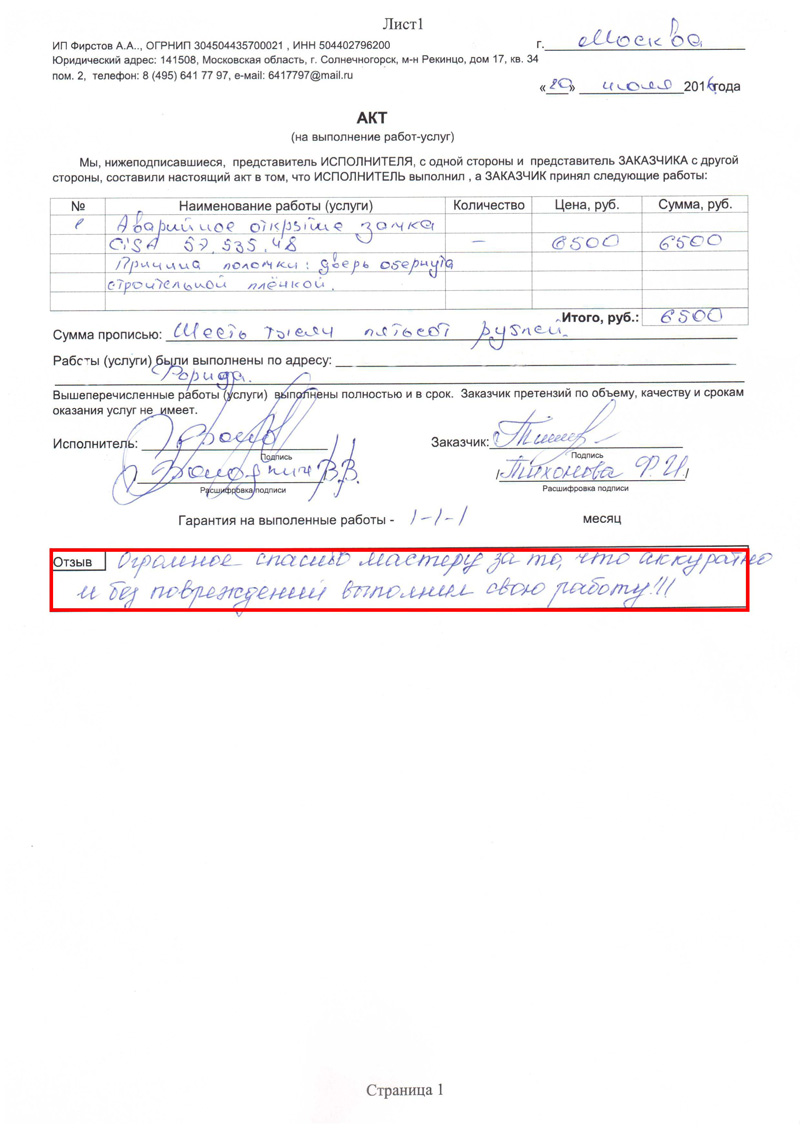 Лист1
ИП Фирстов А.А.., ОГРНИП 304504435700021 , ИНН 504402796200
г. Москва
Юридический адрес: 141508, Московская область, г. Солнечногорск, м-н Рекинцо, дом 17, кв. 34
пом. 2, телефон: 8 (495) 641 77 97, e-mail: 6417797@mail.ru
«20» июля 2016года
АКТ
(на выполнение работ-услуг)
Мы, нижеподписавшиеся, представитель ИСПОЛНИТЕЛЯ, с одной стороны и представитель ЗАКАЗЧИКА с другой
стороны, составили настоящий акт в том, что ИСПОЛНИТЕЛЬ выполнил , а ЗАКАЗЧИК принял следующие работы:
№ Наименование работы (услуги) Количество Цена, руб. Сумма, руб.
1 Аварийное открытие замка
CISA 57.535.48 — 6500 6500
Причина поломки: дверь обернута
строительной плёнкой.
Итого, руб.: 6500
Сумма прописью: Шесть тысяч пятьсот рублей.
Работы (услуги) были выполнены по адресу:
Вышеперечисленные работы (услуги) выполнены полностью и в срок. Заказчик претензий по объему, качеству и срокам
оказания услуг не имеет.
Исполнитель: Заказчик:
Подпись Подпись
В.В. /Тихонова Ф.И/
Расшифровка подписи Расшифровка подписи
Гарантия на выполенные работы - /-/-/ месяц
Отзыв Огромное спасибо мастеру за то, что аккуратно
и без повреждений выполнил свою работу!!!
Страница 1